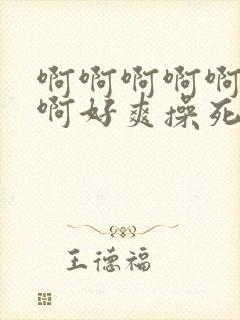 啊啊啊啊啊
啊好爽操死
王德福